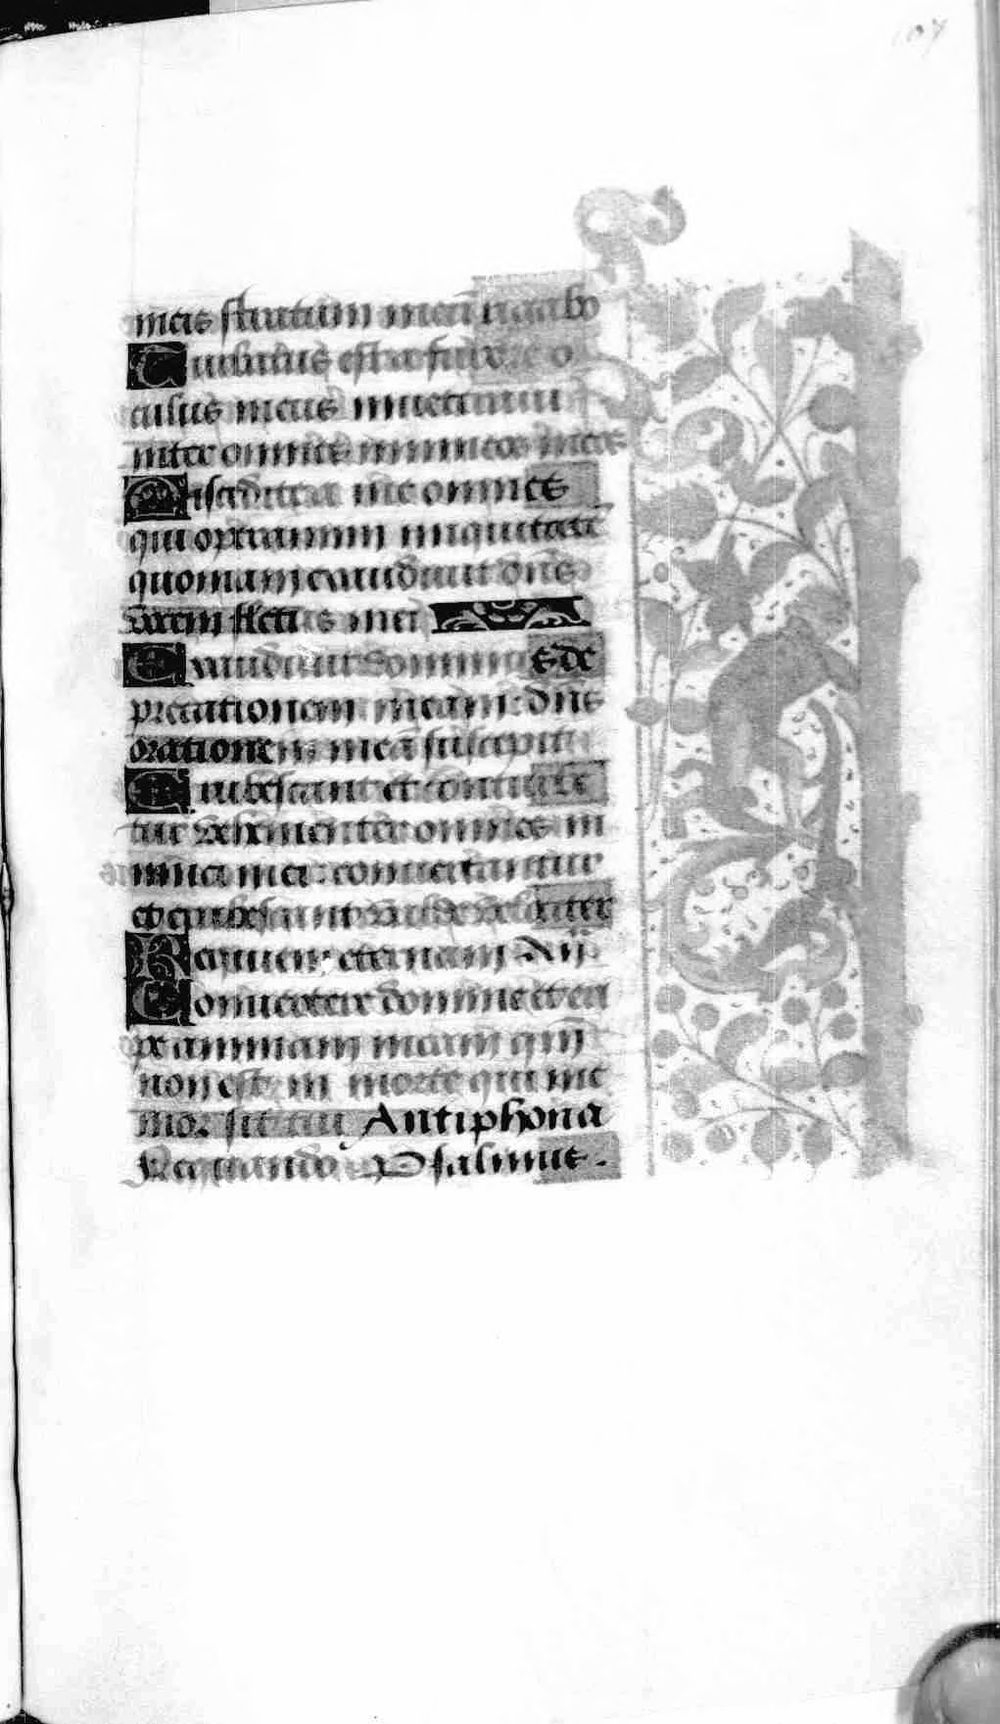 107
meis stratum meum rigabo
Turbatus est a furore o
culus meus inueteraui
inter omnes inimicos meos
Discedite a me omnes
qui operamini iniquitatē
quoniam exaudiuit dn̄s
vocem fletus mei
Exaudiuit dominus de
precationem meam: dn̄s
orationem meā suscepit
Erubescant et contur
tur vehementer omnes in
imici mei: conuertantur
et erubescant valde velociter
Requiem eternam
Conuertere domine et eri
pe animam meam qm̄
non est in morte qui me
mor sit tui Antiphona
Psalmus.